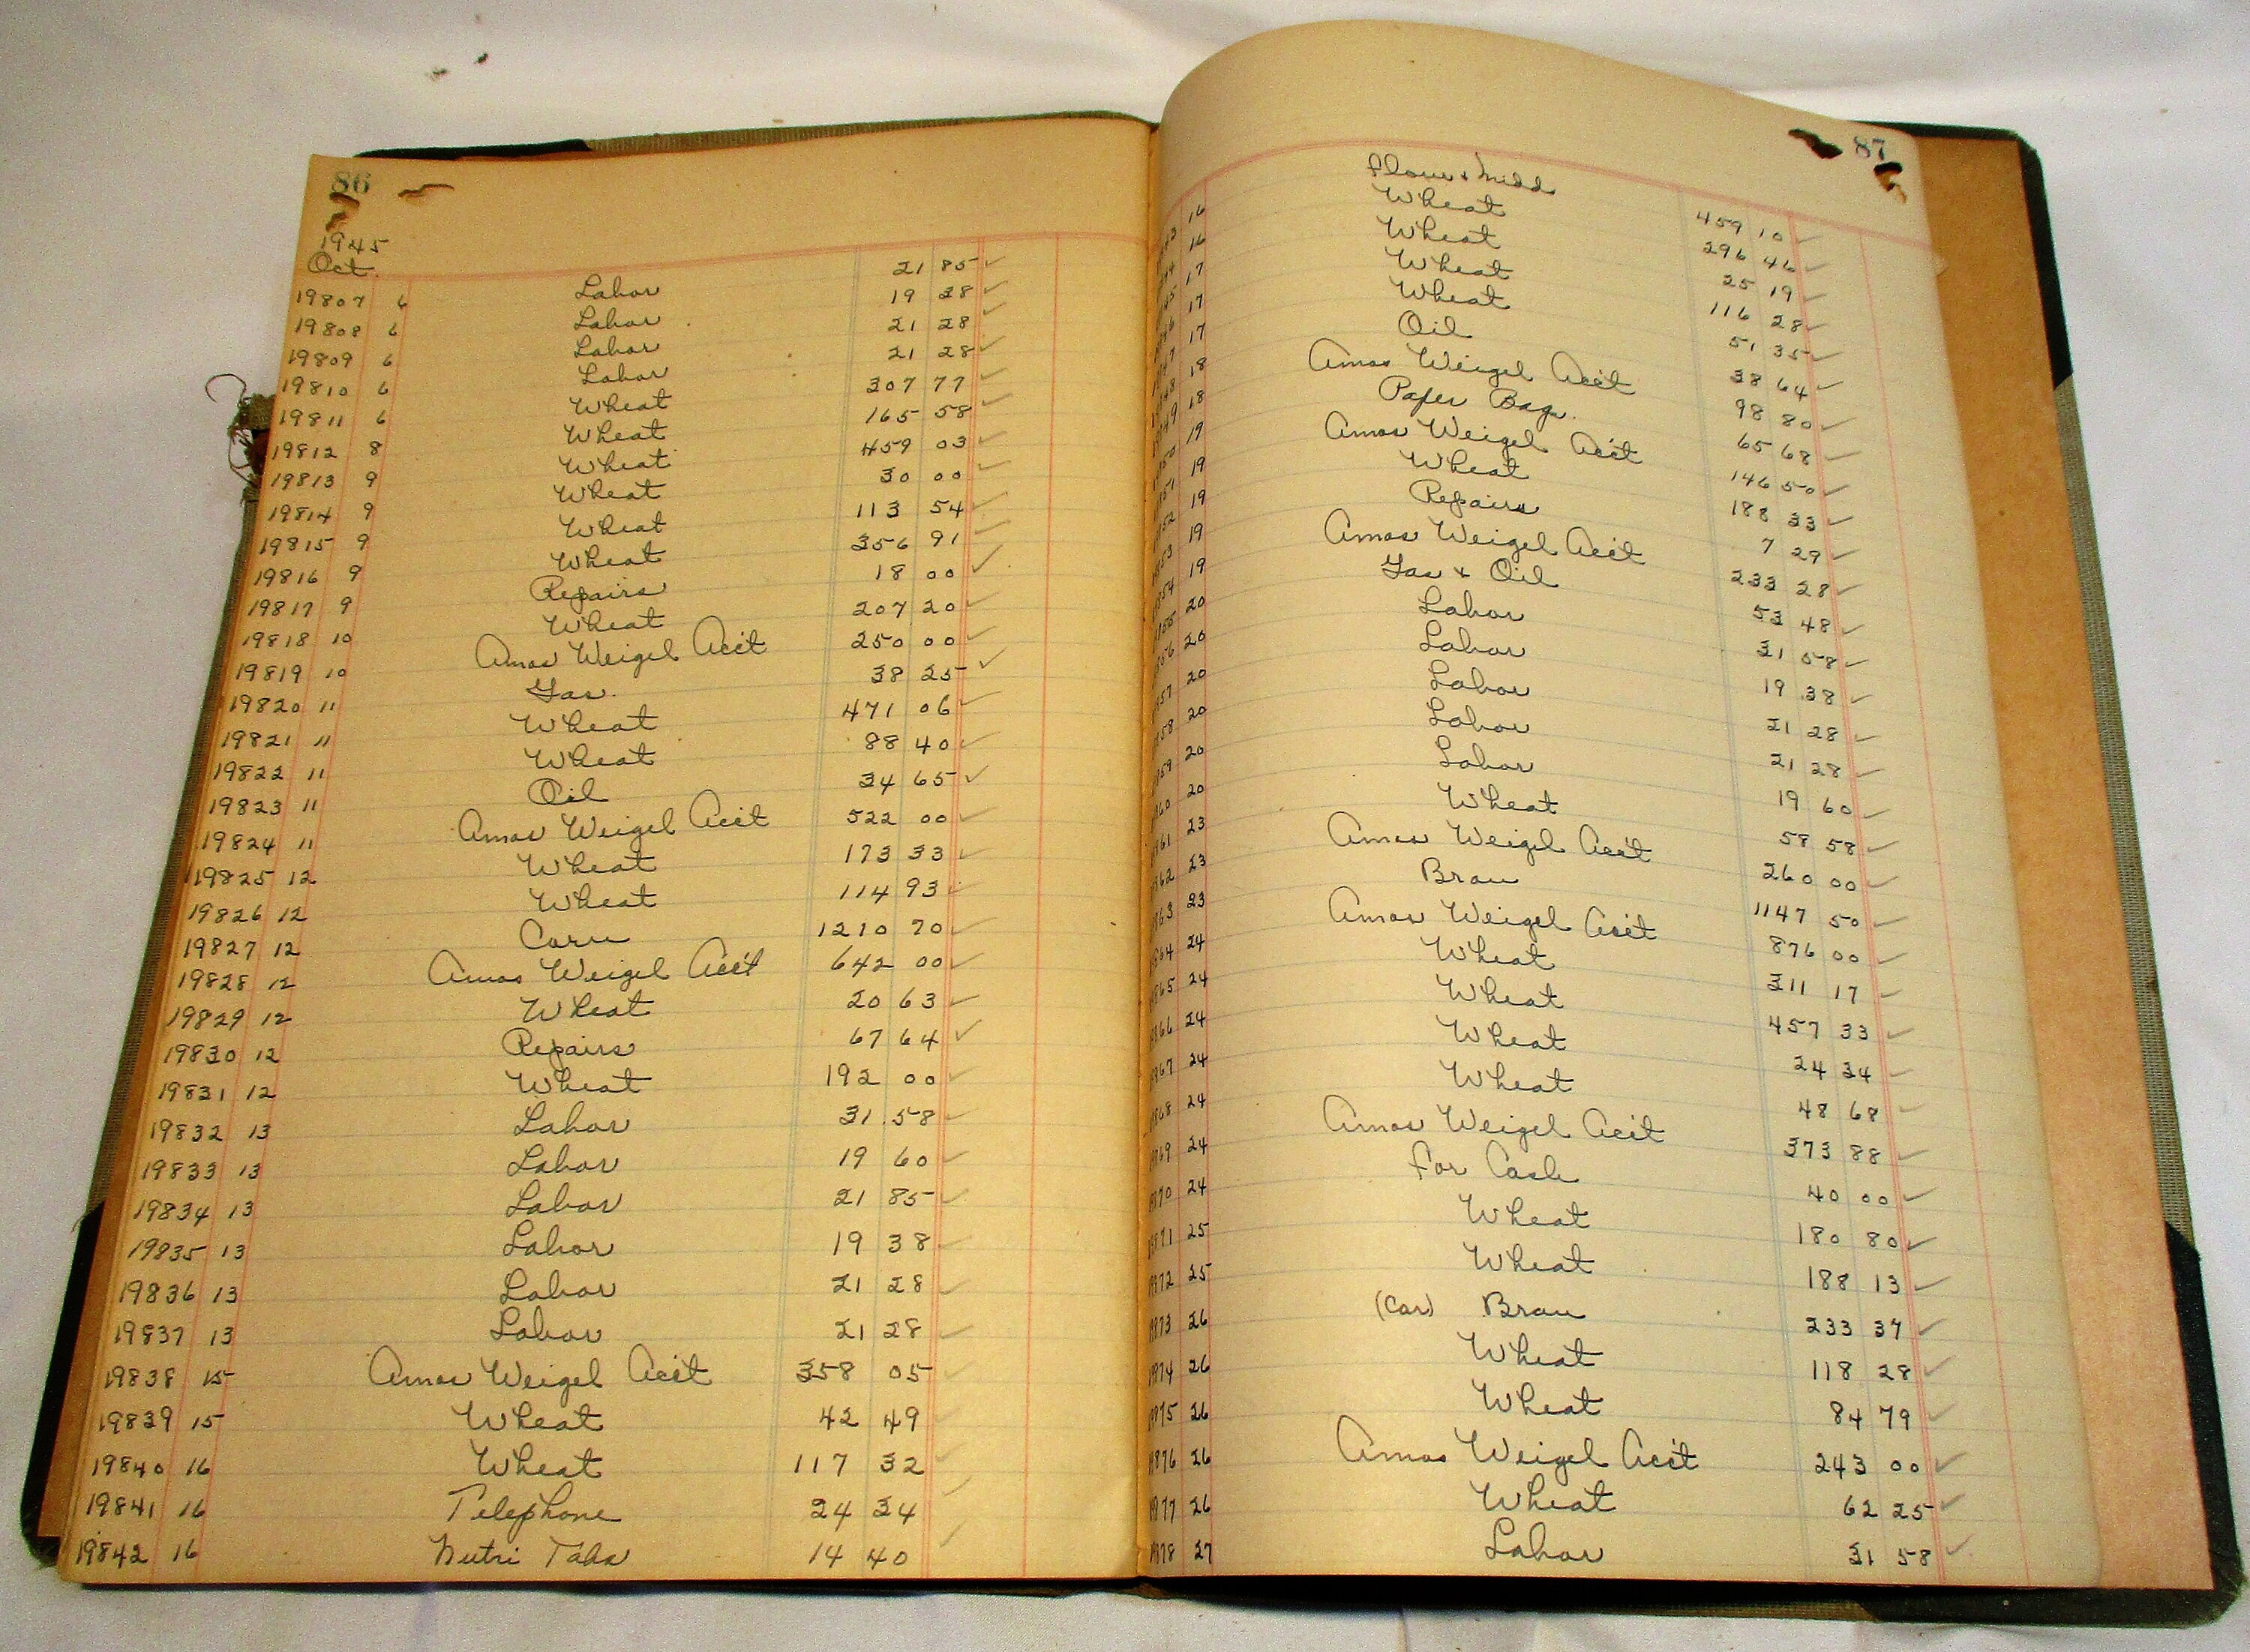 86
1945
Oct.
19807 6 Labor 21 85 ✓
19808 6 Labor 19 38 ✓
19809 6 Labor 21 28 ✓
19810 6 Labor 21 28 ✓
19811 6 Wheat 307 77 ✓
19812 8 Wheat 165 58 ✓
19813 9 Wheat 459 03 ✓
19814 9 Wheat 30 00 ✓
19815 9 Wheat 113 54 ✓
19816 9 Wheat 356 91 ✓
19817 9 Repairs 18 00 ✓
19818 10 Wheat 207 20 ✓
19819 10 Amos Weigel Acc't 250 00 ✓
19820 11 Gas 38 25 ✓
19821 11 Wheat 471 06 ✓
19822 11 Wheat 88 40 ✓
19823 11 Oil 34 65 ✓
19824 11 Amos Weigel Acc't 522 00 ✓
19825 12 Wheat 173 33 ✓
19826 12 Wheat 114 93 ✓
19827 12 Corn 1210 70 ✓
19828 12 Amos Weigel Acc't 642 00 ✓
19829 12 Wheat 20 63 ✓
19830 12 Repairs 67 64 ✓
19831 12 Wheat 192 00 ✓
19832 13 Labor 31 58 ✓
19833 13 Labor 19 60 ✓
19834 13 Labor 21 85 ✓
19835 13 Labor 19 38 ✓
19836 13 Labor 21 28 ✓
19837 13 Labor 21 28 ✓
19838 15 Amos Weigel Acc't 358 05 ✓
19839 15 Wheat 42 49 ✓
19840 16 Wheat 117 32 ✓
19841 16 Telephone 24 34 ✓
19842 16 Nutri Tabs 14 40 ✓
87
16 Flour & Midds 459 10 ✓
16 Wheat 296 46 ✓
17 Wheat 25 19 ✓
17 Wheat 116 28 ✓
17 Wheat 51 35 ✓
18 Oil 38 64 ✓
18 Amos Weigel Acc't 98 80 ✓
19 Paper Bags 65 68 ✓
19 Amos Weigel Acc't 146 50 ✓
19 Wheat 188 33 ✓
19 Repairs 7 29 ✓
19 Amos Weigel Acc't 233 28 ✓
20 Gas & Oil 53 48 ✓
20 Labor 31 58 ✓
20 Labor 19 38 ✓
20 Labor 21 28 ✓
20 Labor 21 28 ✓
20 Labor 19 60 ✓
23 Wheat 58 58 ✓
23 Amos Weigel Acc't 260 00 ✓
23 Bran 1147 50 ✓
24 Amos Weigel Acc't 876 00 ✓
24 Wheat 311 17 ✓
24 Wheat 457 33 ✓
24 Wheat 24 34 ✓
24 Wheat 48 68 ✓
24 Amos Weigel Acc't 373 88 ✓
24 For Cash 40 00 ✓
25 Wheat 180 80 ✓
25 Wheat 188 13 ✓
26 (Car) Bran 233 37 ✓
26 Wheat 118 28 ✓
26 Wheat 84 79 ✓
26 Amos Weigel Acc't 243 00 ✓
26 Wheat 62 25 ✓
27 Labor 31 58 ✓